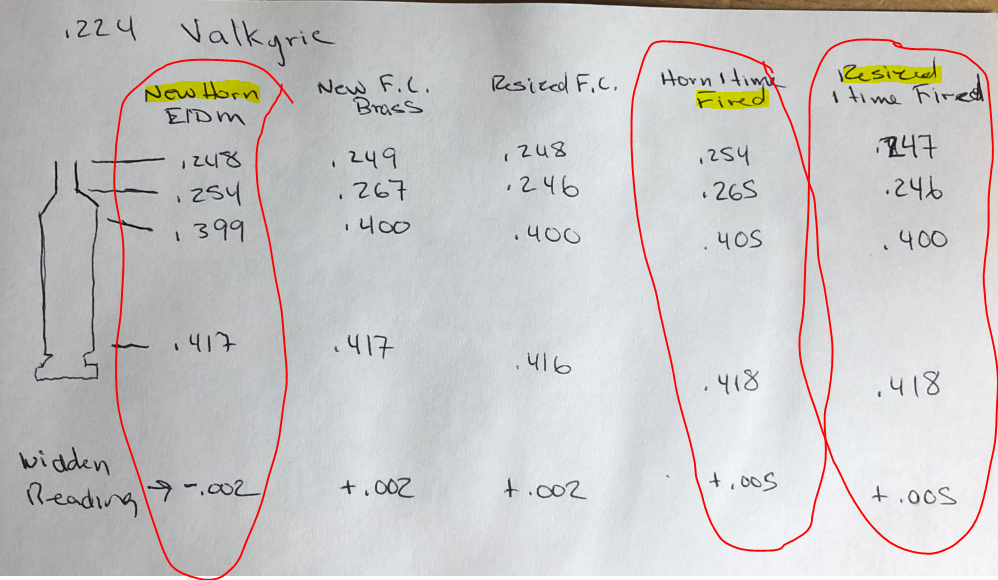 .224 Valkyrie
New Horn New F.C. Resized F.C. Horn 1 time Resized
E/Dm Brass Fired 1 time Fired
.248 .249 .248 .254 .247
.254 .267 .246 .265 .246
.399 .400 .400 .405 .400
.417 .417 .416 .418 .418
Widden
Reading → -.002 +.002 +.002 +.005 +.005